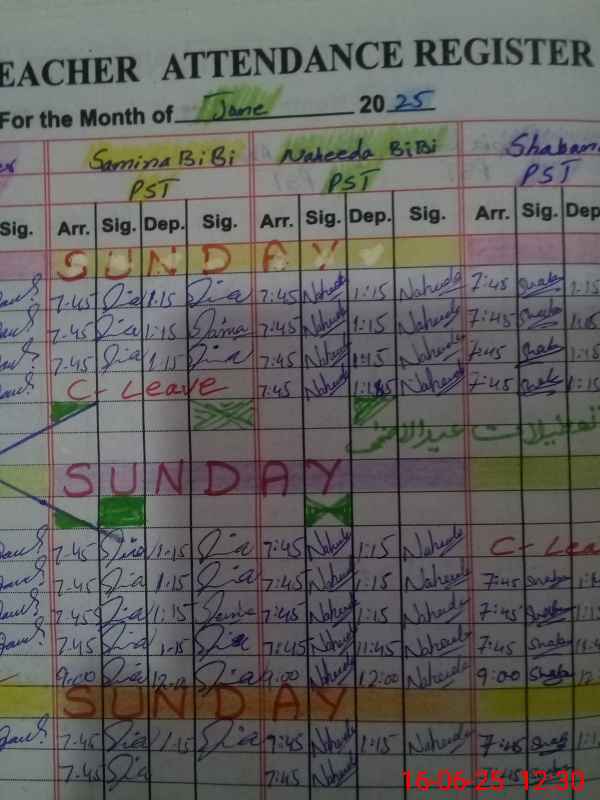 EACHER ATTENDANCE REGISTER
For the Month of June 2025
Samina BiBi Naheeda BiBi Shaban
PST PST PST
Sig. Arr. Sig. Dep. Sig. Arr. Sig. Dep. Sig. Arr. Sig. Dep
SUNDAY
7-45 Sia 1:15 Sia 7:45 Naheeda 1:15 Naheeda 7:45 Shaba 1:15
7-45 Sia 1:15 Samina 7:45 Naheeda 1:15 Naheeda 7:45 Shaba
7-45 Sia 1:15 Sia 7:45 Naheeda 1:15 Naheeda 7:45 Shaba 1:15
C- Leave 7:45 Naheeda 1:15 Naheeda 7:45 Shaba 1:15
تعطیلات عیدالاضحی
SUNDAY
7-45 Sia 1:15 Sia 7:45 Naheeda 1:15 Naheeda C- Lea
7-45 Sia 1:15 Sia 7:45 Naheeda 1:15 Naheeda 7:45 Shaba
7-45 Sia 1:15 Samina 7:45 Naheeda 1:15 Naheeda 7:45 Shaba
7-45 Sia 1-15 Sia 7:45 Naheeda 11:45 Naheeda 7:45 Shaba
9:00 Sia Sia 9:00 Naheeda 12:00 Naheeda 9:00 Shaba
SUNDAY
7-45 Sia 1:15 Sia 7:45 Naheeda 1:15 Naheeda 7:45 Shaba
7-45 Sia 7:45 Naheeda 7:45 Shaba
16-06-25 12:30